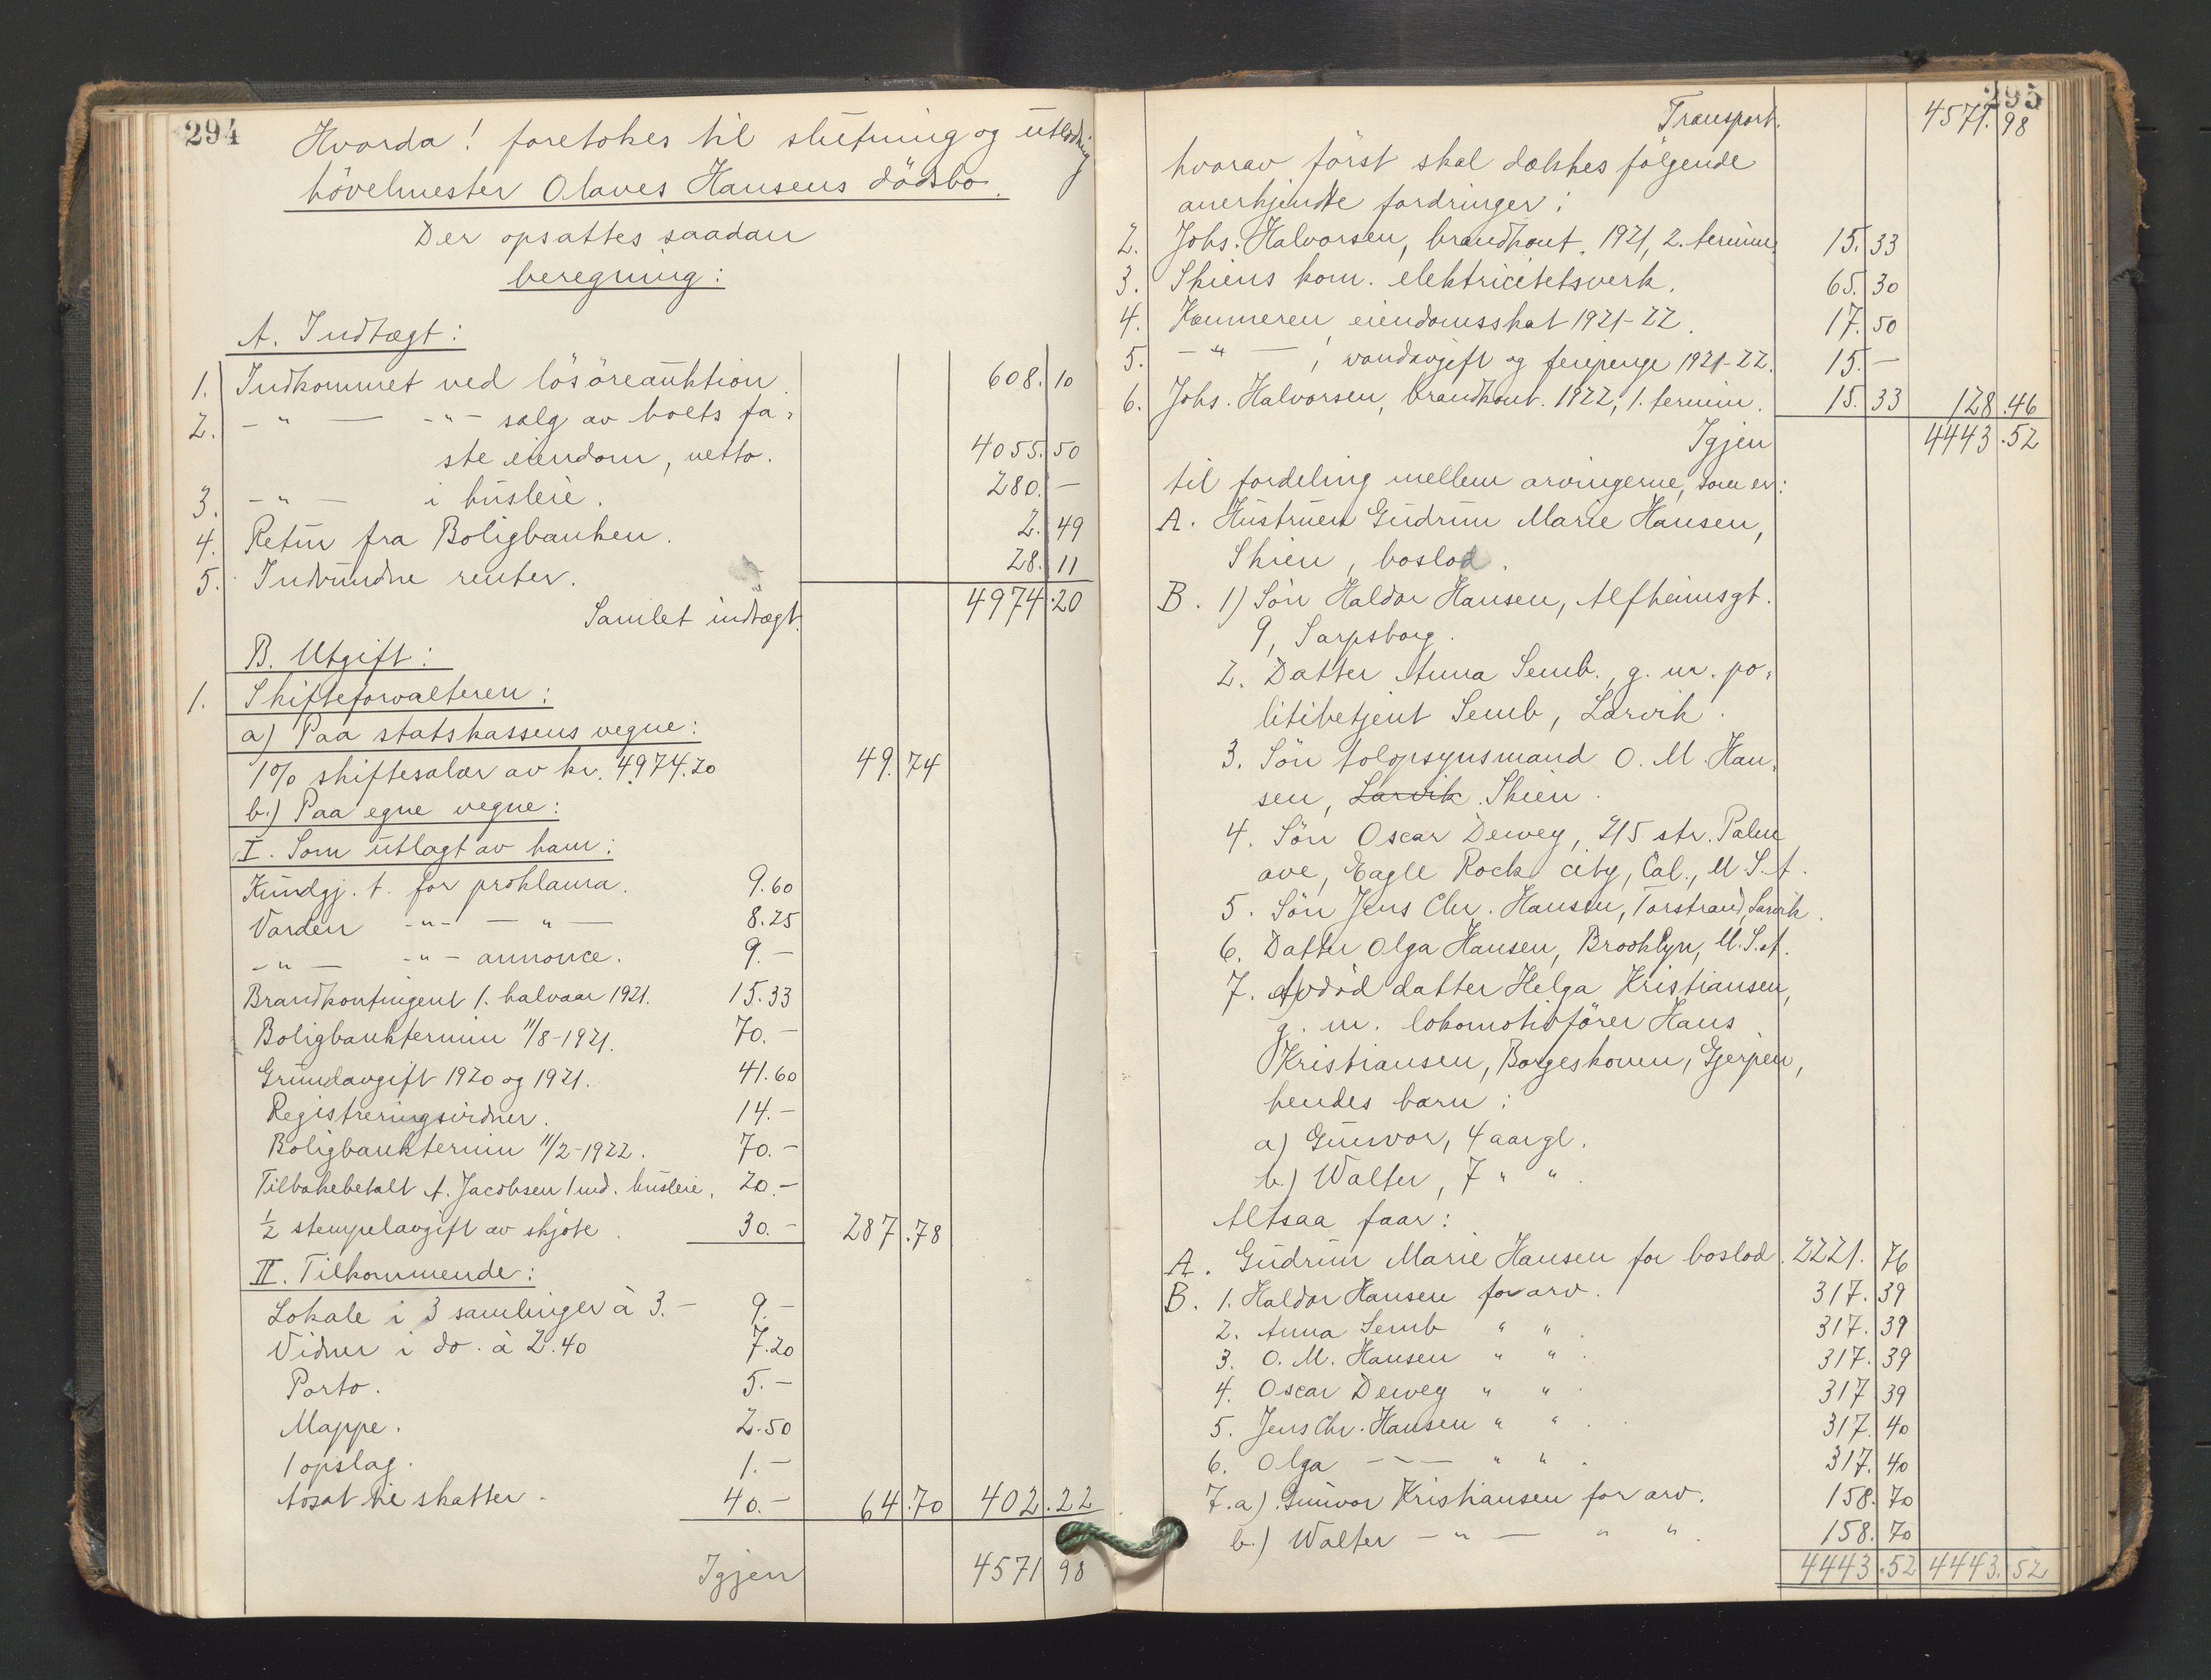 294
Hvorda! foretokes til slutning og utlodning
hövelmester Olaves Hansens dödsbo.
Der opsattes saadan
beregning:
A. Indtægt:
1. Indkommet ved lösöreauktion. 608.10
2. -"- -"- salg av boets fa-
ste eiendom, netto. 4055.50
3. -"- i husleie. 280.-
4. Retur fra Boligbanken. 2.49
5. Indvundne renter. 28.11
Samlet indtægt. 4974.20
B. Utgift:
1. Skifteforvalteren:
a) Paa statskassens vegne:
1% skiftesalær av kr. 4974.20 49.74
b.) Paa egne vegne:
I. Som utlagt av ham:
Kundgj. t. for proklama. 9.60
Varden -"- -"- 8.25
-"- -"- annonce. 9.-
Brandkontingent 1. halvaar 1921. 15.33
Boligbanktermin 11/8-1921. 70.-
Grundavgift 1920 og 1921. 41.60
Registreringsvidner. 14.-
Boligbanktermin 11/2-1922. 70.-
Tilbakebetalt A. Jacobsen 1 md. husleie. 20.-
1/2 stempelavgift av skjöte. 30.- 287.78
II. Tilkommende:
Lokale i 3 samlinger à 3.- 9.-
Vidner i do. à 2.40 7.20
Porto. 5.-
Mappe. 2.50
1 opslag. 1.-
Avsat til skatter. 40.- 64.70 402.22
Igjen 4571 98
295
Transport. 4571.98
hvorav först skal dækkes fölgende
anerkjendte fordringer:
2. Johs. Halvorsen, brandkont. 1921, 2. termin. 15.33
3. Skiens kom. elektricitetsverk. 65.30
4. Kæmneren eiendomsskat 1921-22. 17.50
5. -"-, vandavgift og feiepenge 1921-22. 15.-
6. Johs. Halvorsen, brandkont. 1922, 1. termin. 15.33 128.46
Igjen 4443.52
til fordeling mellem arvingerne, som er:
A. Hustruen Gudrun Marie Hansen,
Skien, boslod.
B. 1) Sön Haldor Hansen, Alfheimsgt.
9, Sarpsborg.
2. Datter Anna Semb, g. m. po-
litibetjent Semb, Larvik.
3. Sön tolopsynsmand O. M. Han-
sen, Larvik. Skien.
4. Sön Oscar Dewey, 215 str. Palm
ave, Eagle Rock city, Cal., U.S.A.
5. Sön Jens Chr. Hansen, Torstrand, Larvik.
6. Datter Olga Hansen, Brooklyn, U.S.A.
7. Avdöd datter Helga Kristiansen,
g. m. lokomotivförer Hans
Kristiansen, Borgeskoven, Gjerpen,
hendes barn:
a) Gunvor, 4 aar gl.
b.) Walter, 7 " ".
Altsaa faar:
A. Gudrun Marie Hansen for boslod. 2221.76
B. 1. Haldor Hansen for arv. 317.39
2. Anna Semb " ". 317.39
3. O. M. Hansen " ". 317.39
4. Oscar Dewey " ". 317 39
5. Jens Chr. Hansen " ". 317.40
6. Olga -"- " ". 317.40
7. a). Gunvor Kristiansen for arv. 158.70
b.) Walter -"- " ". 158.70
4443.52 4443.52